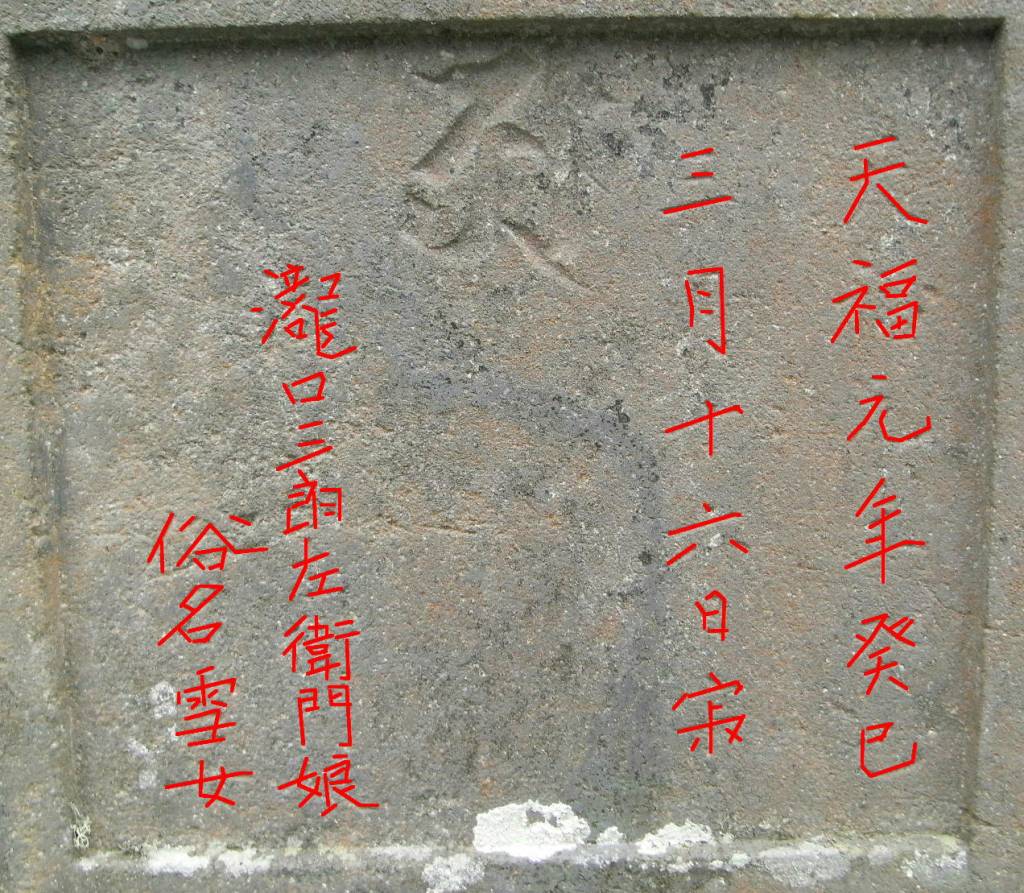 天福元年癸巳
三月十六日寂
瀧口三郎左衛門娘
俗名雪女